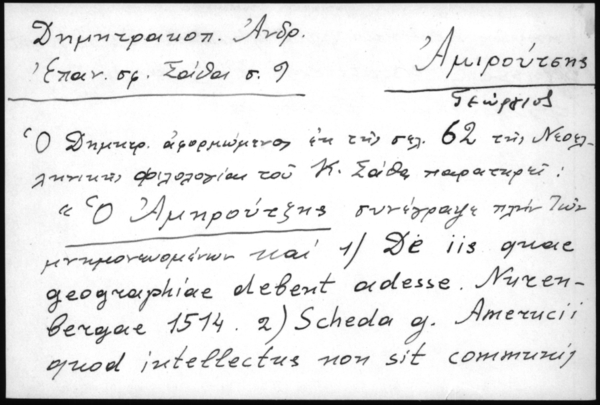 Δημητρακοπ. Ἀνδρ.
Ἐπαν. σφ. Σάθα σ. 9
Ἀμιρούτσης
Γεώργιος
Ὁ Δημητρ. ἀφορμώμενος ἐκ τῆς σελ. 62 τῆς Νεοελ-
ληνικῆς φιλολογίας τοῦ Κ. Σάθα παρατηρεῖ :
"Ὁ Ἀμηρούτζης συνέγραψε πλὴν τῶν
μνημονευομένων καί 1) De iis quae
geographiae debent adesse. Nuren-
bergae 1514. 2) Scheda g. Amerucii
quod intellectus non sit communis